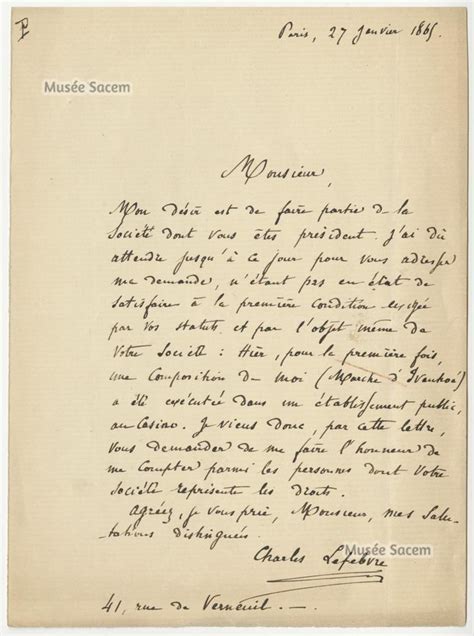 Paris, 27 Janvier 1865.
Musée Sacem
Monsieur,
Mon désir est de faire partie de la
Société dont vous êtes président. J'ai dû
attendre jusqu'à ce jour pour vous adresser
ma demande, n'étant pas en état de
satisfaire à la première condition exigée
par vos statuts et par l'objet même de
votre Société : Hier, pour la première fois,
une Composition de moi (Marche d'Ivanhoé)
a été exécutée dans un établissement public,
au Casino. Je viens donc, par cette lettre,
vous demander de me faire l'honneur de
me compter parmi les personnes dont votre
Société représente les droits.
Agréez, je vous prie, Monsieur, mes salu-
tations distinguées.
Charles Lefebvre
Musée Sacem
41, rue de Verneuil. —